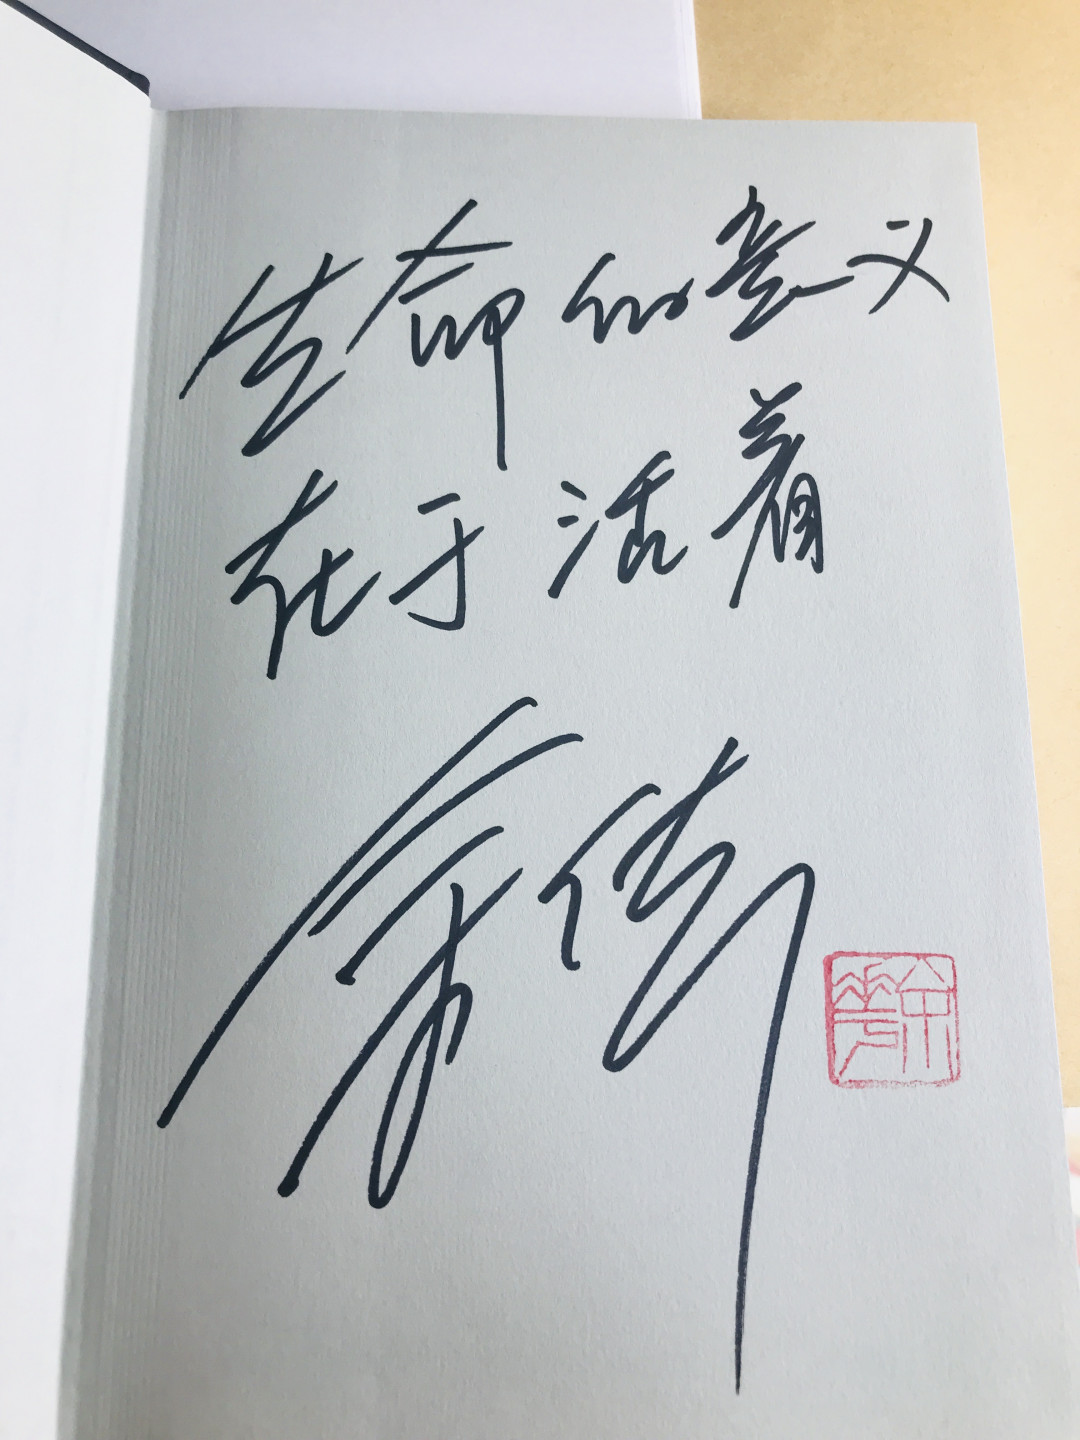 生命的意义
在于活着
余华
余華